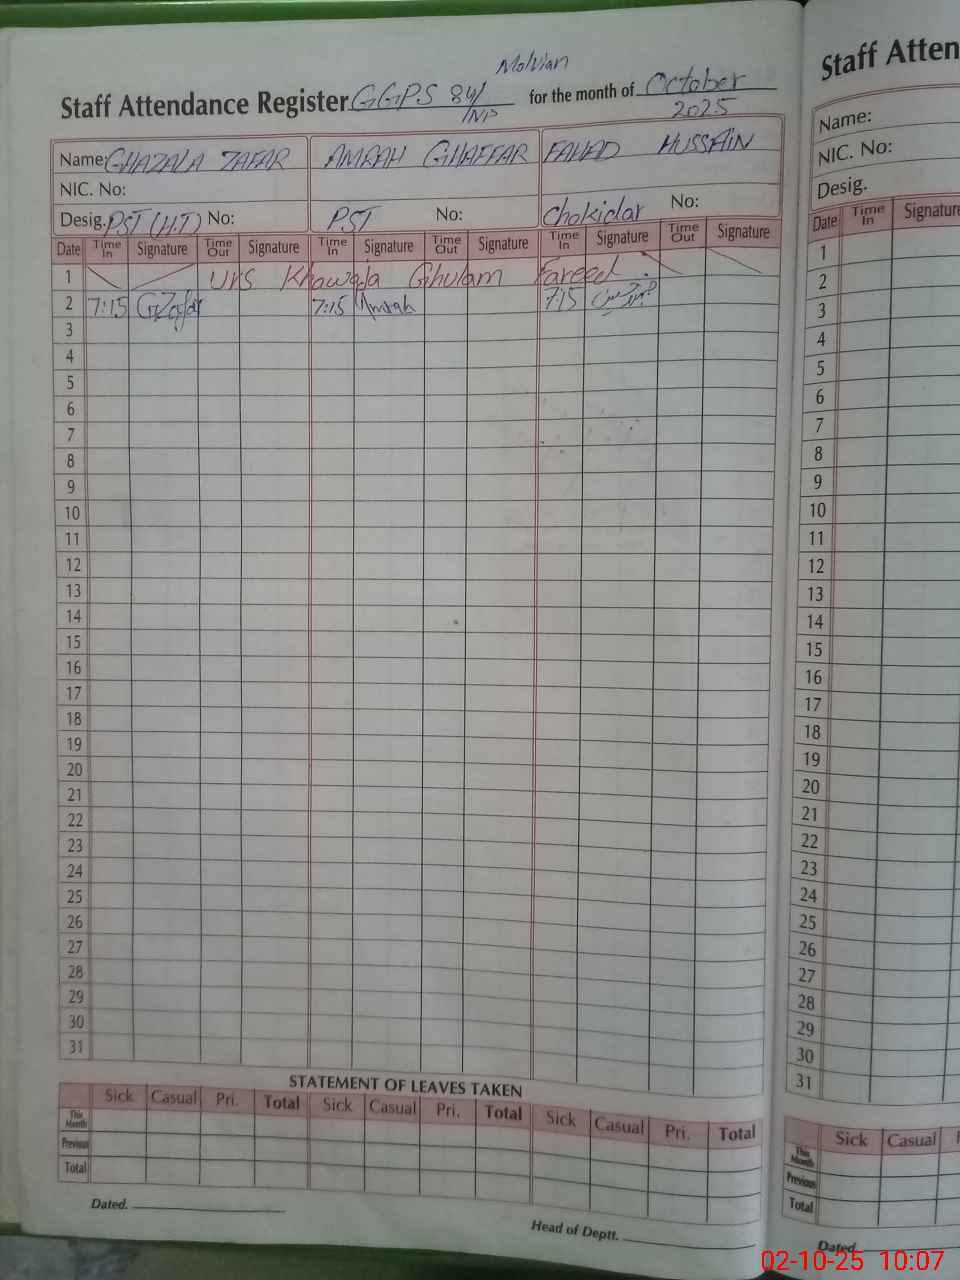 Molvian
Staff Attendance Register GGPS 84/ for the month of October
/NP 2025
Name: GHAZALA ZAFAR AMRAH GHAFFAR FAHAD HUSSAIN
NIC. No:
Desig. PST (H.T) No: PST No: Chokidar No:
Date Time In Signature Time Out Signature Time In Signature Time Out Signature Time In Signature Time Out Signature
1 Urs Khawaja Ghulam Fareed.
2 7:15 GZafar 7:15 Amrah 7:15
3
4
5
6
7
8
9
10
11
12
13
14
15
16
17
18
19
20
21
22
23
24
25
26
27
28
29
30
31
STATEMENT OF LEAVES TAKEN
Sick Casual Pri. Total Sick Casual Pri. Total Sick Casual Pri. Total
This Month
Previous
Total
Dated. Head of Deptt.
Staff Atten
Name:
NIC. No:
Desig.
Date Time In Signature
1
2
3
4
5
6
7
8
9
10
11
12
13
14
15
16
17
18
19
20
21
22
23
24
25
26
27
28
29
30
31
Sick Casual
This Month
Previous
Total
Dated
02-10-25 10:07